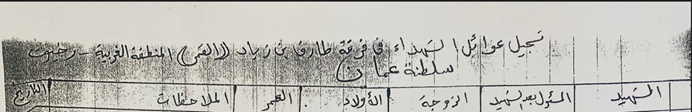 تسجيل عوائل الشهداء في فرقة طارق بن زياد (الفتح) المنطقة الغربية - رخيوت
سلطنة عمان
الشهيد المسئول بعد الشهيد الزوجة الأولاد العمر الملاحظات التاريخ